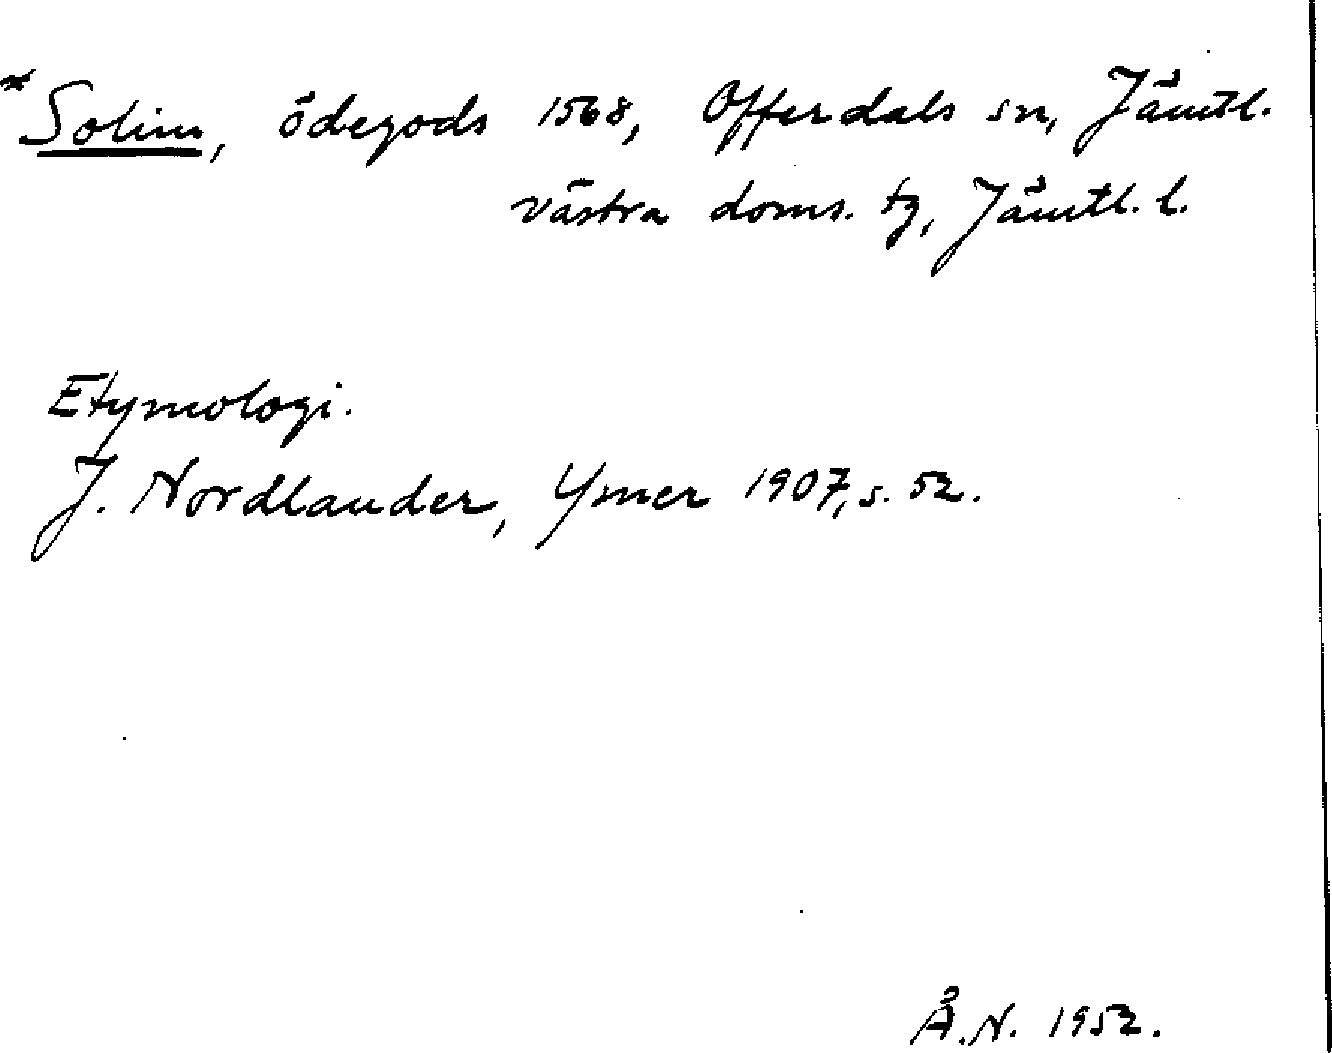 *Solim, ödegods 1568, Offerdals sn, Jämtl.
västra doms. tg, Jämtl. l.
Etymologi.
J. Nordlander, Ymer 1907, s. 52.
Å.N. 1952.